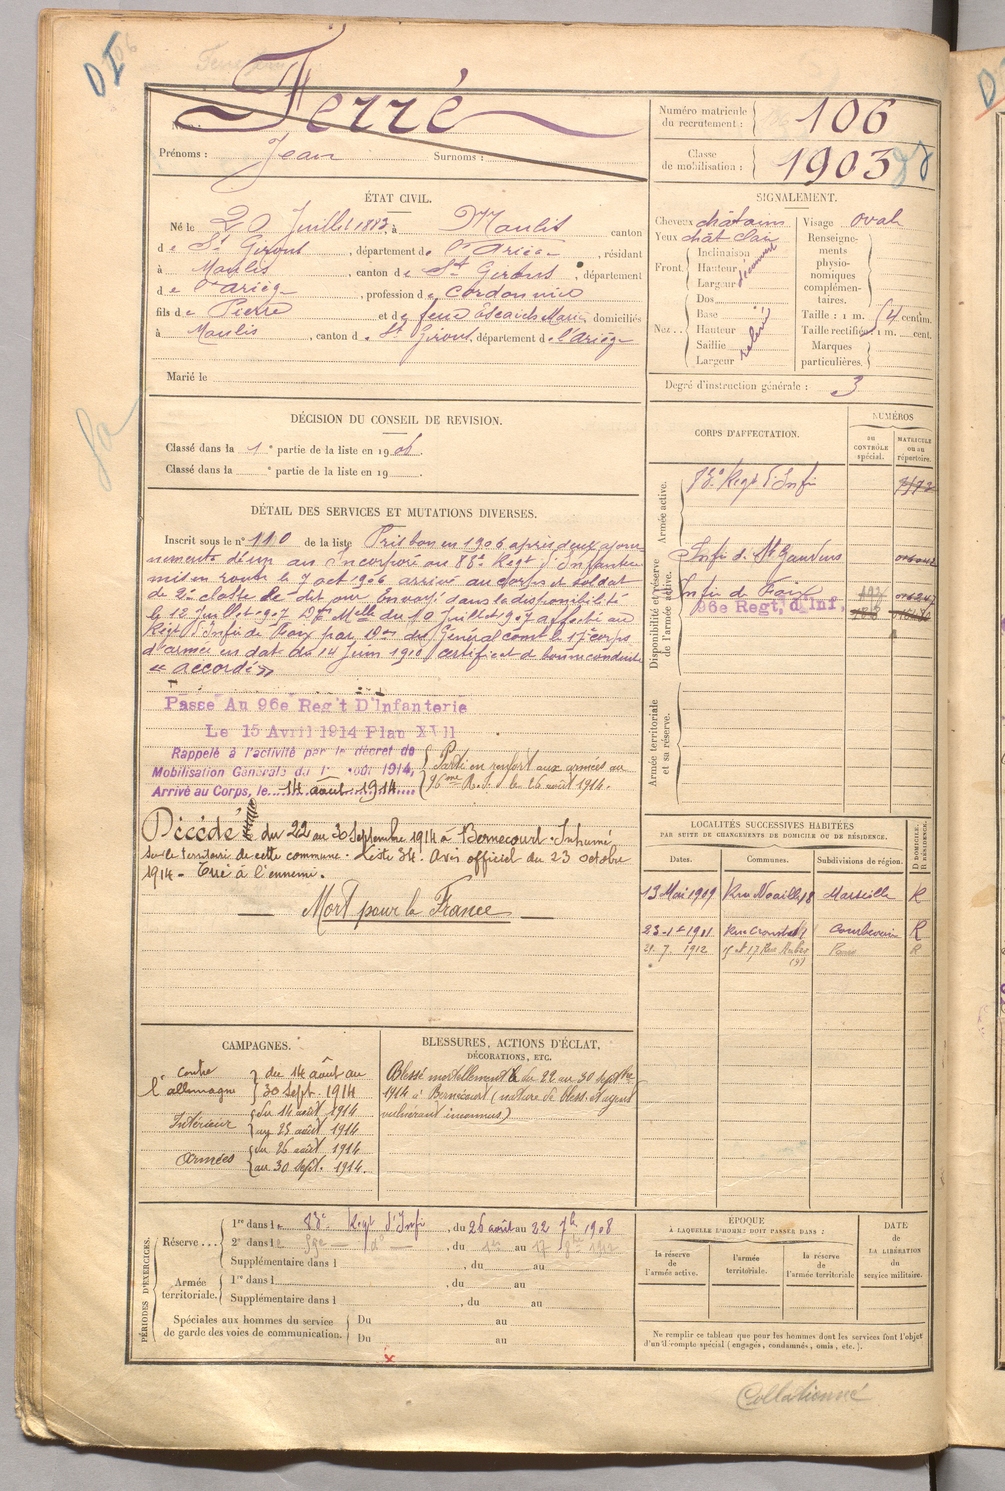 D I
106
Nom : Ferré
Prénoms : Jean Surnoms :
Numéro matricule du recrutement : 106
Classe de mobilisation : 1903
ÉTAT CIVIL.
Né le 20 Juillet 1883, à Moulis canton
de St Girons, département de l'Ariège, résidant
à Moulis, canton de St Girons, département
de l'Ariège, profession de Cordonnier
fils de Pierre et de feue Escaich Marie domiciliés
à Moulis, canton de St Girons, département de l'Ariège
Marié le
SIGNALEMENT.
Cheveux châtains
Yeux chât clair
Front. Inclinaison
Hauteur
Largeur
découvert
Nez.. Dos
Base
Hauteur
Saillie
Largeur
relevé
Visage ovale
Renseignements physionomiques complémentaires.
Taille : 1 m. centim.
Taille rectifiée 1 m. cent.
Marques particulières.
Degré d'instruction générale : 3
DÉCISION DU CONSEIL DE REVISION.
Classé dans la 1e partie de la liste en 1906.
Classé dans la e partie de la liste en 19
DÉTAIL DES SERVICES ET MUTATIONS DIVERSES.
Inscrit sous le n° 110 de la liste Pris bon en 1906 après deux ajour-
nements d'un an incorporé au 83e Régt d'Infanterie
mis en route le 7 oct 1906 arrivé au corps et soldat
de 2e classe le dit jour Envoyé dans la disponibilité
le 12 Juillet 1907 Don Mlle du 10 Juillet 1907 affecté au
Régt d'Infie de Foix par Don du Général comt le 17e corps
d'armée en date du 14 Juin 1910 certificat de bonne conduite
« accordé »
Passé Au 96e Reg't D'Infanterie
Le 15 Avril 1914 Plan XVII
Rappelé à l'activité par le décret de
Mobilisation Générale du 1er Août 1914,
Arrivé au Corps, le 14 août 1914
Parti en renfort aux armées au
96me R.I. le 26 août 1914.
Décédé du 22 au 30 Septembre 1914 à Bernecourt. Inhumé
sur le territoire de cette commune. Liste 34. Avis officiel du 23 octobre
1914 - Tué à l'ennemi.
Mort pour la France
CORPS D'AFFECTATION.
NUMÉROS
au CONTRÔLE spécial.
MATRICULE ou au répertoire.
Armée active.
83e Regt d'Infie
Disponibilité et réserve de l'armée active.
Infie de St Gaudens
Infie de Foix
96e Regt, d'Inf.
Armée territoriale et sa réserve.
LOCALITÉS SUCCESSIVES HABITÉES
PAR SUITE DE CHANGEMENTS DE DOMICILE OU DE RÉSIDENCE.
Dates. Communes. Subdivisions de région. D DOMICILE. R RÉSIDENCE.
13 Mai 1909 Rue Noailles 8 Marseille R
23-1er 1911 Courbevoie R
21. 7. 1912 15 et 17 Rue Auber (9) R
CAMPAGNES.
Contre l'allemagne du 14 août au 30 Sept. 1914
Intérieur du 14 août 1914 au 25 août 1914
Armées du 26 août 1914 au 30 Sept. 1914.
BLESSURES, ACTIONS D'ÉCLAT,
DÉCORATIONS, ETC.
Blessé mortellement du 22 au 30 septbre
1914 à Bernecourt (nature de bless. et agent
vulnérant inconnus)
PÉRIODES D'EXERCICES.
Réserve... 1re dans le 83e Regt d'Infie, du 26 août au 22 7bre 1908
2e dans le do, du 1er au 17 8bre 1912
Supplémentaire dans l , du au
Armée territoriale. 1re dans l , du au
Supplémentaire dans l , du au
Spéciales aux hommes du service de garde des voies de communication. Du au
Du au
ÉPOQUE
À LAQUELLE L'HOMME DOIT PASSER DANS :
la réserve de l'armée active.
l'armée territoriale.
la réserve de l'armée territoriale
DATE de LA LIBÉRATION du service militaire.
Ne remplir ce tableau que pour les hommes dont les services font l'objet
d'un décompte spécial (engagés, condamnés, omis, etc.).
Collationné